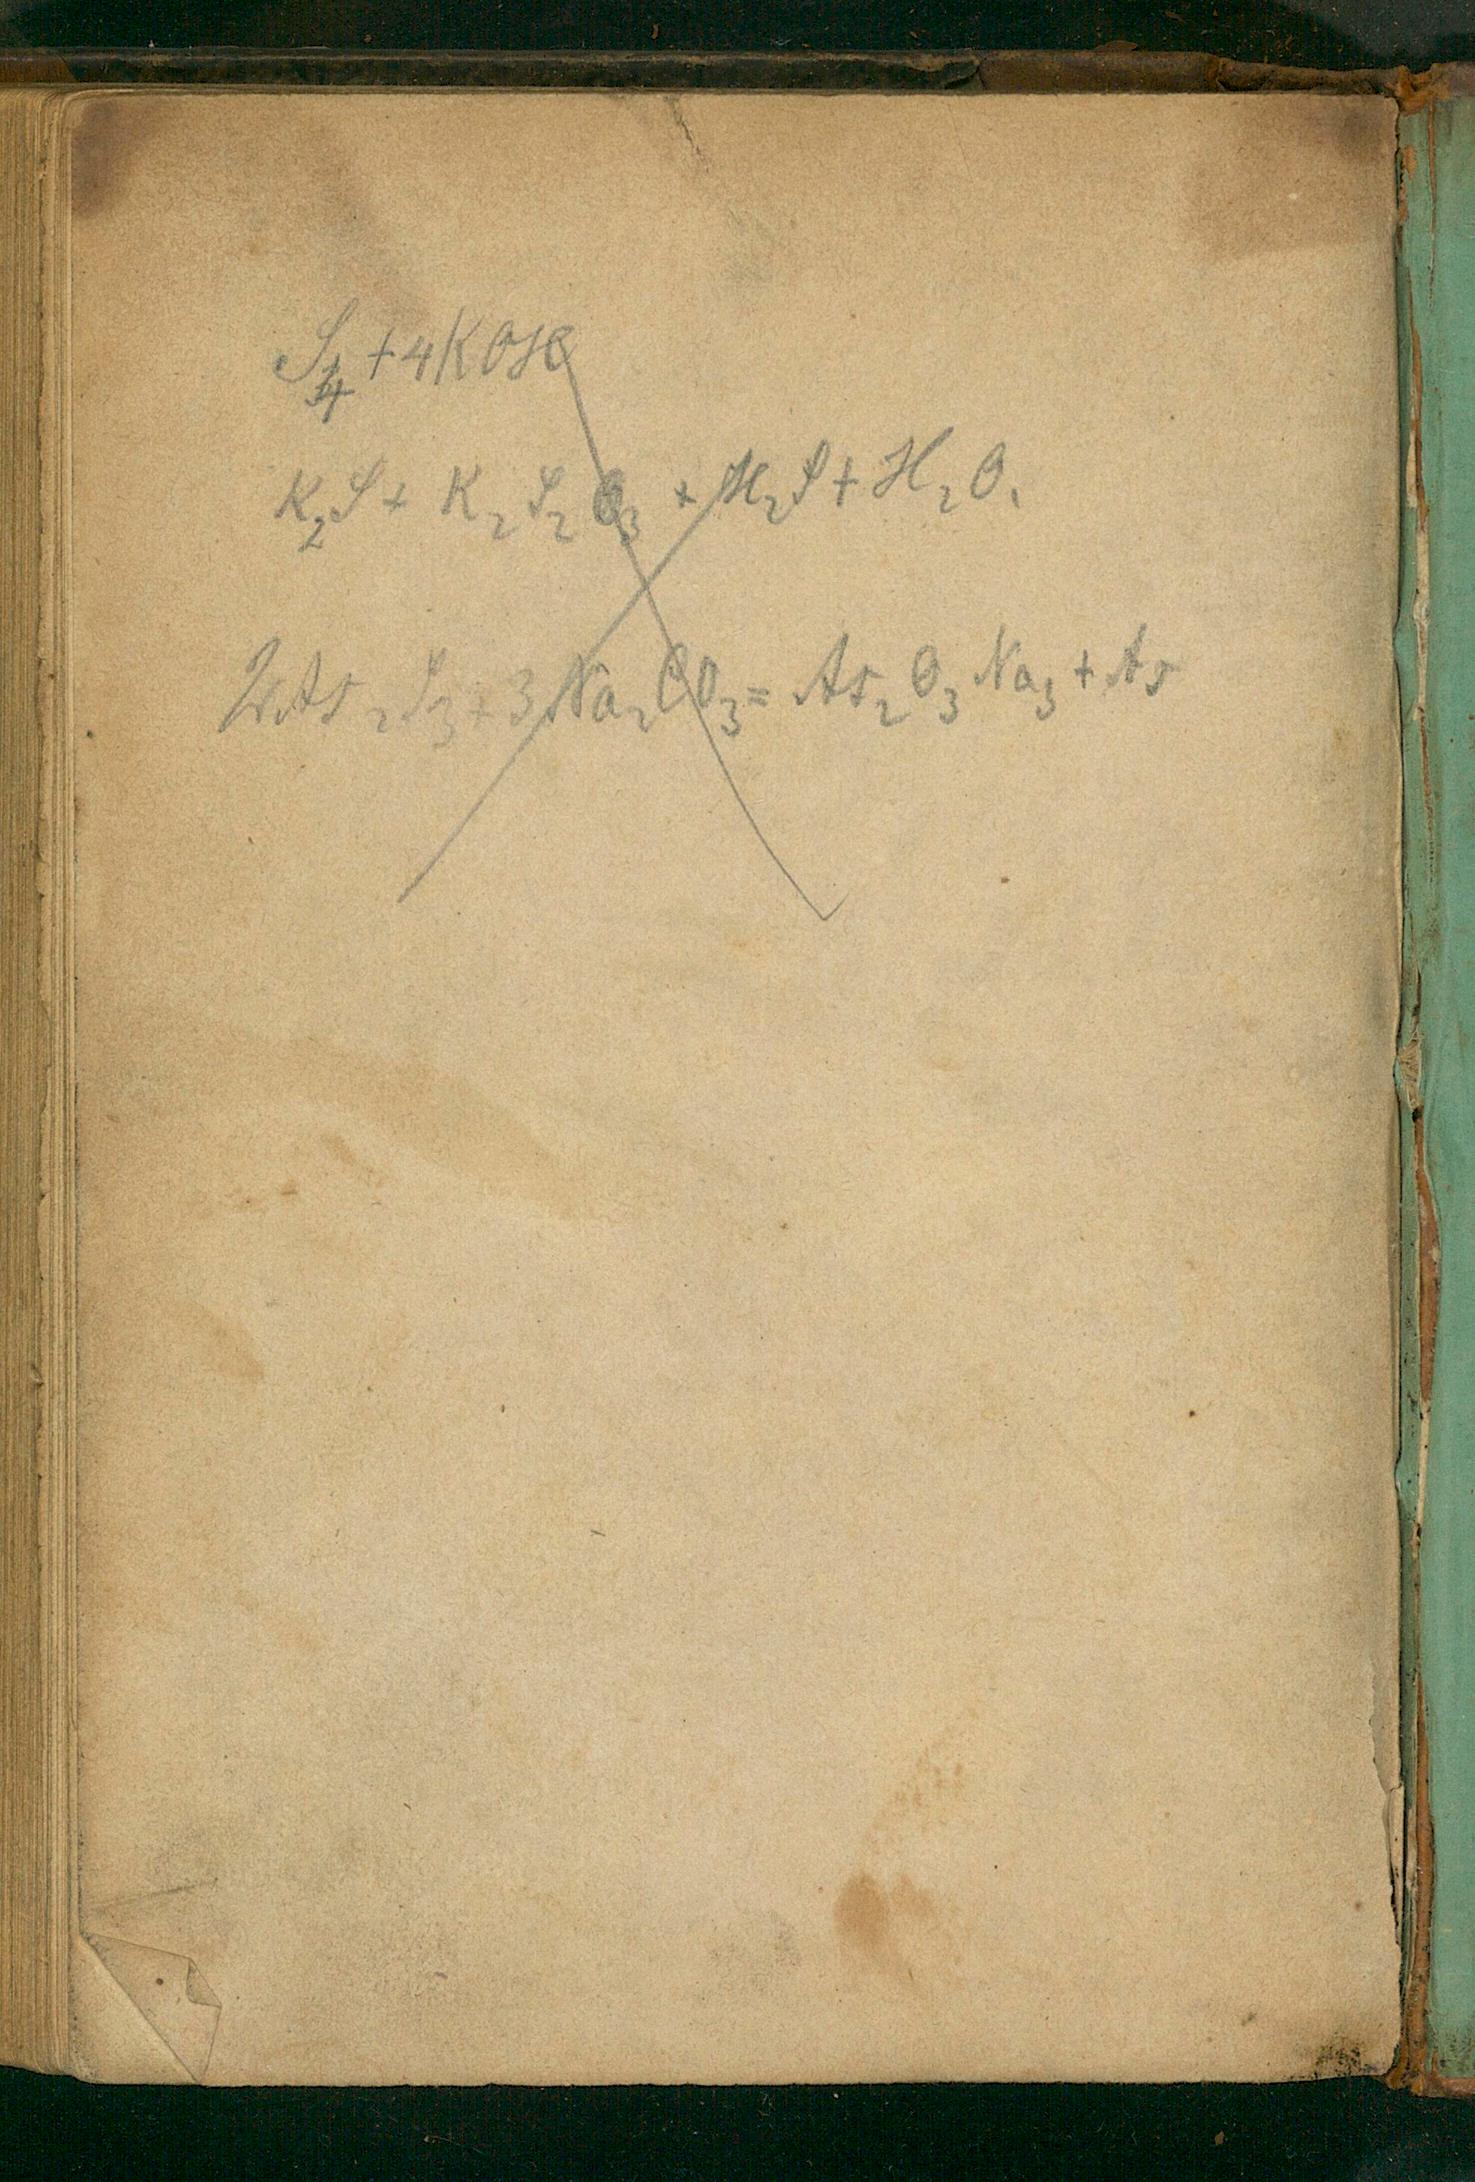 S₄ + 4KOH
K₂S + K₂S₂O₃ + H₂S + H₂O.
2As₂S₃ + 3Na₂CO₃ = As₂O₃Na₃ + As